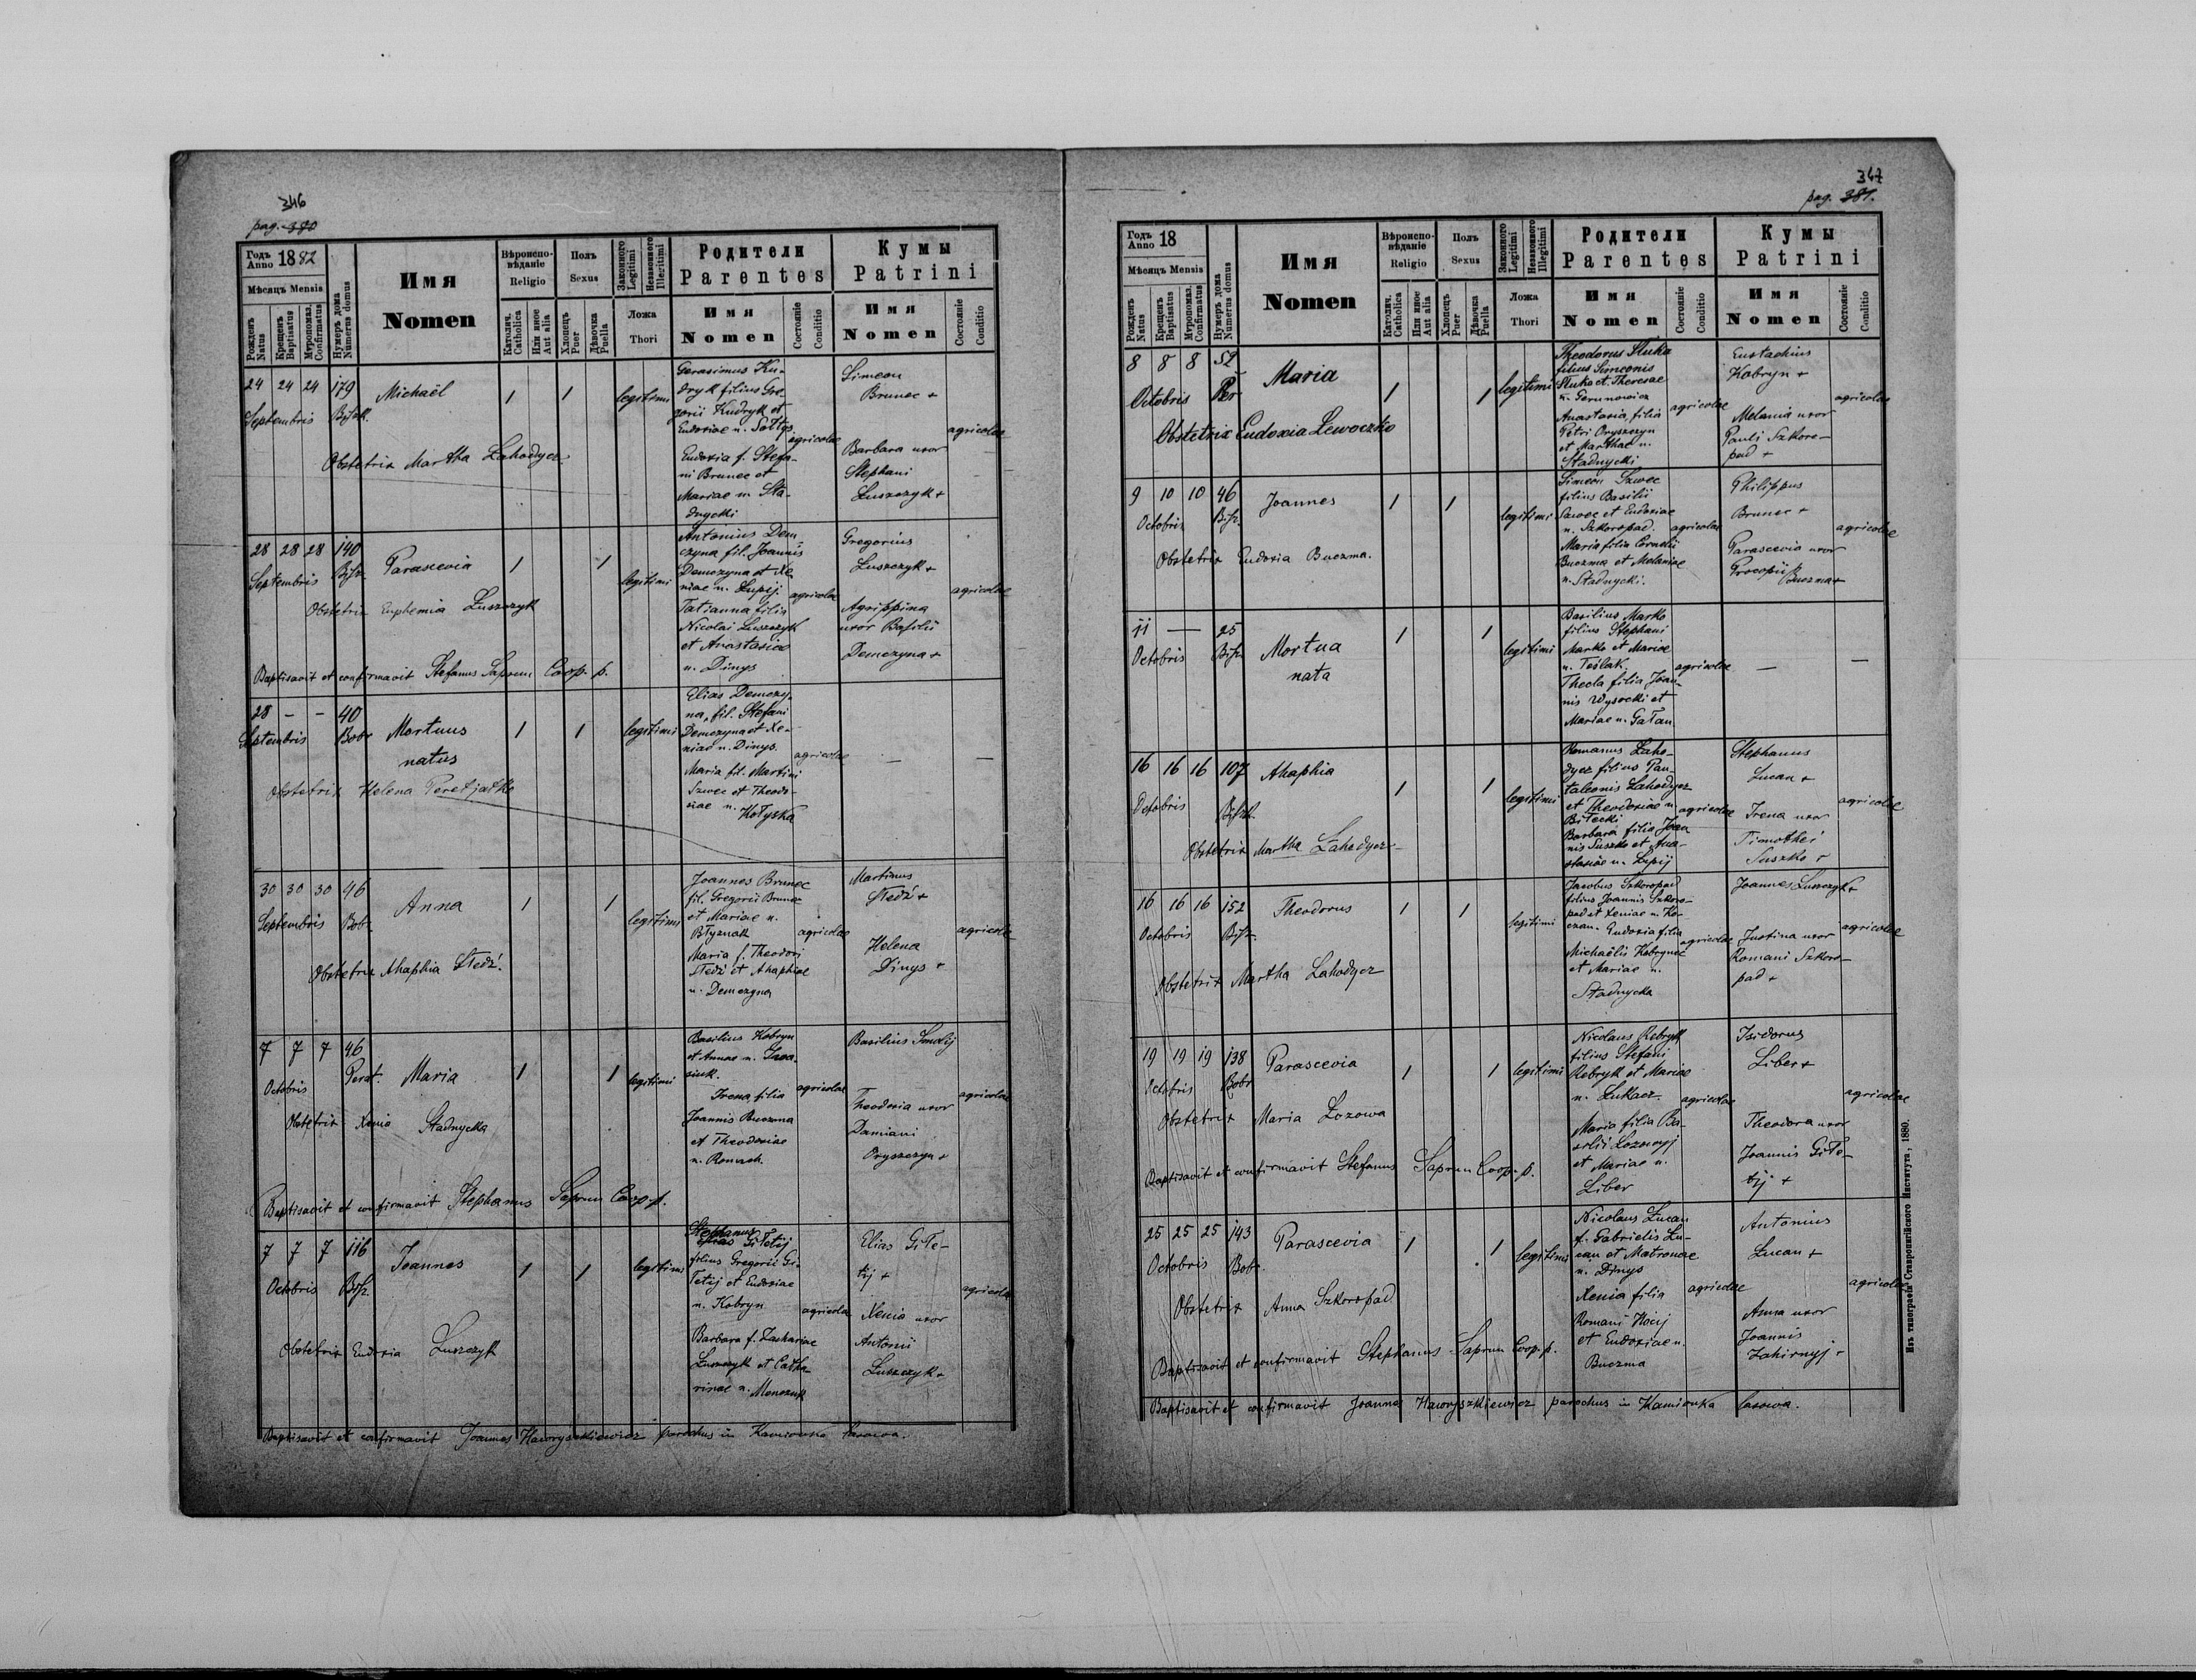 346
pag. 380
Годъ Anno 1882
Мѣсяцъ Mensis
Рожденъ Natus
Крещенъ Baptisatus
Мѵропомаз. Confirmatus
Нумеръ дома Numerus domus
Имя
Nomen
Вѣроиспо-
вѣданіе
Religio
Католич. Catholica
Или иное Aut alia
Полъ
Sexus
Хлопецъ Puer
Дѣвочка Puella
Законного Legitimi
Незаконного Illegitimi
Ложа
Thori
Родители
Parentes
Имя
Nomen
Состояніе Conditio
Кумы
Patrini
Имя
Nomen
Состояніе Conditio
24 24 24 179 Michaël 1 1 legitimi
Septembris
Obstetrix Martha Lahodycz
Gerasimus Ku-
dryk filius Gre-
gorii Kudryk et
Eudoxiae n. Sołtys
Eudoxia f. Stefa-
ni Brunec et
Mariae n. Sta-
dnycki
agricolae
Simeon
Brunec +
Barbara uxor
Stephani
Łuszczyk +
agricolae
28 28 28 140 Parascevia 1 1 legitimi
Septembris
Obstetrix Euphemia Łuszczyk
Antonius Dem-
czyna fil. Joannis
Demczyna et Xe-
niae n. Łupij
Tatianna filia
Nicolai Łuszczyk
et Anastasiae
n. Dinys
agricolae
Gregorius
Łuszczyk +
Agrippina
uxor Basilii
Demczyna +
agricolae
Baptisavit et confirmavit Stefanus Saprun Coop. p.
28 - - 40 Mortuus 1 1 legitimi
Septembris Bobr
natus
Obstetrix Helena Peretjatko
Elias Demczy-
na, fil. Stefani
Demczyna et Xe-
niae n. Dinys.
Maria fil. Martini
Szwec et Theodo-
siae n. Hołyszka
agricolae
—
—
30 30 30 46 Anna 1 1 legitimi
Septembris Bobr.
Obstetrix Ahaphia Sledź.
Joannes Brunec
fil. Gregorii Brunec
et Mariae n.
Błyznak
Maria f. Theodori
Sledź et Ahaphiae
n. Demczyna
agricolae
Martinus
Sledź +
Helena
Dinys +
agricolae
7 7 7 46 Maria 1 1 legitimi
Octobris Perat.
Obstetrix Xenia Stadnycka
Basilius Kobryn
et Annae n. Iwa-
siuk.
Irena, filia
Joannis Buczma
et Theodosiae
n. Romach.
agricolae
Basilius Smolij
Theodosia uxor
Damiani
Oryszczyn +
agricolae
Baptisavit et confirmavit Stephanus Saprun Coop. p.
7 7 7 116 Joannes 1 1 legitimi
Octobris
Obstetrix Eudoxia Łuszczyk
Stephanus
Elias Giłetij
filius Gregorii Gi-
łetij et Eudoxiae
n. Kobryn
Barbara f. Zachariae
Łuszczyk et Catha-
rinae n. Monczuk
agricolae
Elias Giłe-
tij +
Xenia uxor
Antonii
Łuszczyk +
agricolae
Baptisavit et confirmavit Joannes Hawryszkiewicz parochus in Kamionka lasowa.
347
pag. 381.
Годъ Anno 18
Мѣсяцъ Mensis
Рожденъ Natus
Крещенъ Baptisatus
Мѵропомаз. Confirmatus
Нумеръ дома Numerus domus
Имя
Nomen
Вѣроиспо-
вѣданіе
Religio
Католич. Catholica
Или иное Aut alia
Полъ
Sexus
Хлопецъ Puer
Дѣвочка Puella
Законного Legitimi
Незаконного Illegitimi
Ложа
Thori
Родители
Parentes
Имя
Nomen
Состояніе Conditio
Кумы
Patrini
Имя
Nomen
Состояніе Conditio
8 8 8 52 Maria 1 1 legitimi
Octobris Per
Obstetrix Eudoxia Lewoczko
Theodorus Sluka
filius Simeonis
Sluka et Theresae
n. Gerunowicz
Anastasia, filia
Petri Oryszczyn
et Marthae n.
Stadnycki
agricolae
Eustachius
Kobryn +
Melania uxor
Pauli Szkoro-
pad +
agricolae
9 10 10 46 Joannes 1 1 legitimi
Octobris
Obstetrix Eudoxia Buczma.
Simeon Szwec
filius Basilii
Szwec et Eudoxiae
n. Szkoropad.
Maria filia Cornelii
Buczma et Melaniae
n. Stadnycki.
agricolae
Philippus
Brunec +
Parascevia uxor
Procopii
Buczma +
agricolae
11 — 25 Mortua 1 1 legitimi
Octobris
nata
Basilius Marko
filius Stephani
Marko et Mariae
n. Teślak
Thecla filia Joan-
nis Wysocki et
Mariae n. Gałan
agricolae
—
—
16 16 16 107 Ahaphia 1 1 legitimi
Octobris
Obstetrix Martha Lahodycz
Romanus Laho-
dycz filius Pan-
taleonis Lahodycz
et Theodosiae n.
Biłecki
Barbara filia Joan
nis Suszko et Ana-
stasiae n. Łupij
agricolae
Stephanus
Lucan +
Irena uxor
Timothei
Suszko +
agricolae
16 16 16 152 Theodorus 1 1 legitimi
Octobris
Obstetrix Martha Lahodycz
Jacobus Szkoropad
filius Joannis Szkoro-
pad et Xeniae n. Ko-
czan. Eudoxia filia
Michaëlis Kobrynec
et Mariae n.
Stadnycka
agricolae
Joannes Łuszczyk +
Justina uxor
Romani Szkoro-
pad +
agricolae
19 19 19 138 Parascevia 1 1 legitimi
Octobris Bobr
Obstetrix Maria Lozowa
Nicolaus Rebryk
filius Stefani
Rebryk et Mariae
n. Łukacz.
Maria filia Ba-
silii Lozowyj
et Mariae n.
Liber
agricolae
Isidorus
Liber +
Theodora uxor
Joannis Giłe-
tij +
agricolae
Baptisavit et confirmavit Stefanus Saprun Coop. p.
25 25 25 143 Parascevia 1 1 legitimi
Octobris Bobr.
Obstetrix Anna Szkoropad
Nicolaus Lucan
f. Gabrielis Lu-
can et Matronae
n. Dinys
Xenia filia
Romani Hocij
et Eudoxiae n.
Buczma
agricolae
Antonius
Lucan +
Anna uxor
Joannis
Zahirnyj +
agricolae
Baptisavit et confirmavit Stephanus Saprun Coop. p.
Baptisavit et confirmavit Joannes Hawryszkiewicz parochus in Kamionka lasowa.
Изъ типографіи Ставропигійского Института, 1880.